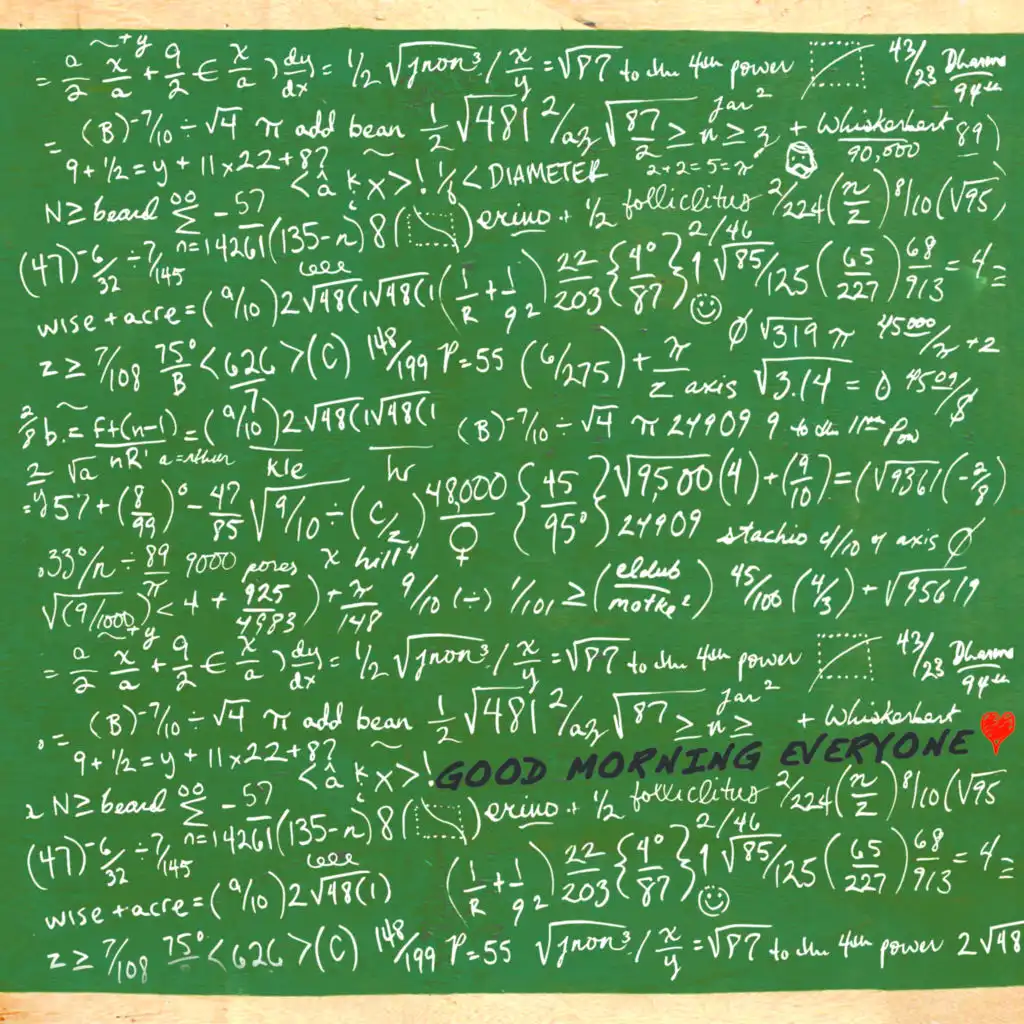 = a/2 x/a ~+y + 9/2 € x/a ) dy/dx = 1/2 √jnon³ / x/y = √87 to the 4th power 43/23
= (B)-7/10 ÷ √4 π add bean 1/2 √481 2/az √87/2 ≥ n ≥ z jar² + Whiskerbert/90,000 89)
9 + 1/2 = y + 11 x 22 + 8? ~ <a k x>! 1/8 < DIAMETER 2+2=5=π
N ≥ beard ∞ ∑ n=1 -57/4261 (135-n) 8 ( ) + 1/2 folliclitus 2/224 (n/z) 8/10 (√95)
(47)-6/32 ÷ 7/145 22/203 {4°/87} 2/46 1 √85/125 (65/227) 68/913 = 4 =
wise + acre = (9/10) 2 √48(1√48(1 (1/R + 1/9 2)
z ≥ 7/108 75°/B <626/7 >(C) 148/199 P=55 (6/275) + π/z axis √3.14 = 0 4509/$
Ø √319 π 45000/π +2
2/8 b. = f+(n-1)/nR' = (9/10) 2 √48(1√48(1 (B)-7/10 ÷ √4 π 24909 9 to the 11th Pow
2/y √a kle hr
= 57 + (8/99)° - 47/85 √9/10 ÷ (C/2) 48,000/♀ {45/95°} √9,500 (4) + (9/10) = (√9361 (-2/8)
24909 stachio 4/10 of axis Ø
.33°/n ÷ 89/π 9000 pores x hill 4
√(9/1000) < 4 + 925/4983 ) + x/148 9/10 (÷) 1/101 ≥ (eldub/motke²) 45/100 (4/3) + √95619
= a/2 x/a ~+y + 9/2 € x/a ) dy/dx = 1/2 √jnon³ / x/y = √87 to the 4th power 43/23
.= (B)-7/10 ÷ √4 π add bean 1/2 √481 2/az √87 ≥ n ≥ jar² + Whiskerbert
9 + 1/2 = y + 11 x 22 + 8? ~ <a k x>!
GOOD MORNING EVERYONE
2 N ≥ beard ∞ ∑ n=1 -57/4261 (135-n) 8 ( ) + 1/2 folliclitus 2/224 (n/z) 8/10 (√95
(47)-6/32 ÷ 7/145 (1/R + 1/9 2) 22/203 {4°/87} 2/46 1 √85/125 (65/227) 68/913 = 4 =
wise + acre = (9/10) 2 √48(1)
z ≥ 7/108 75° <626 >(C) 148/199 P=55 √jnon³ / x/y = √87 to the 4th power 2√48